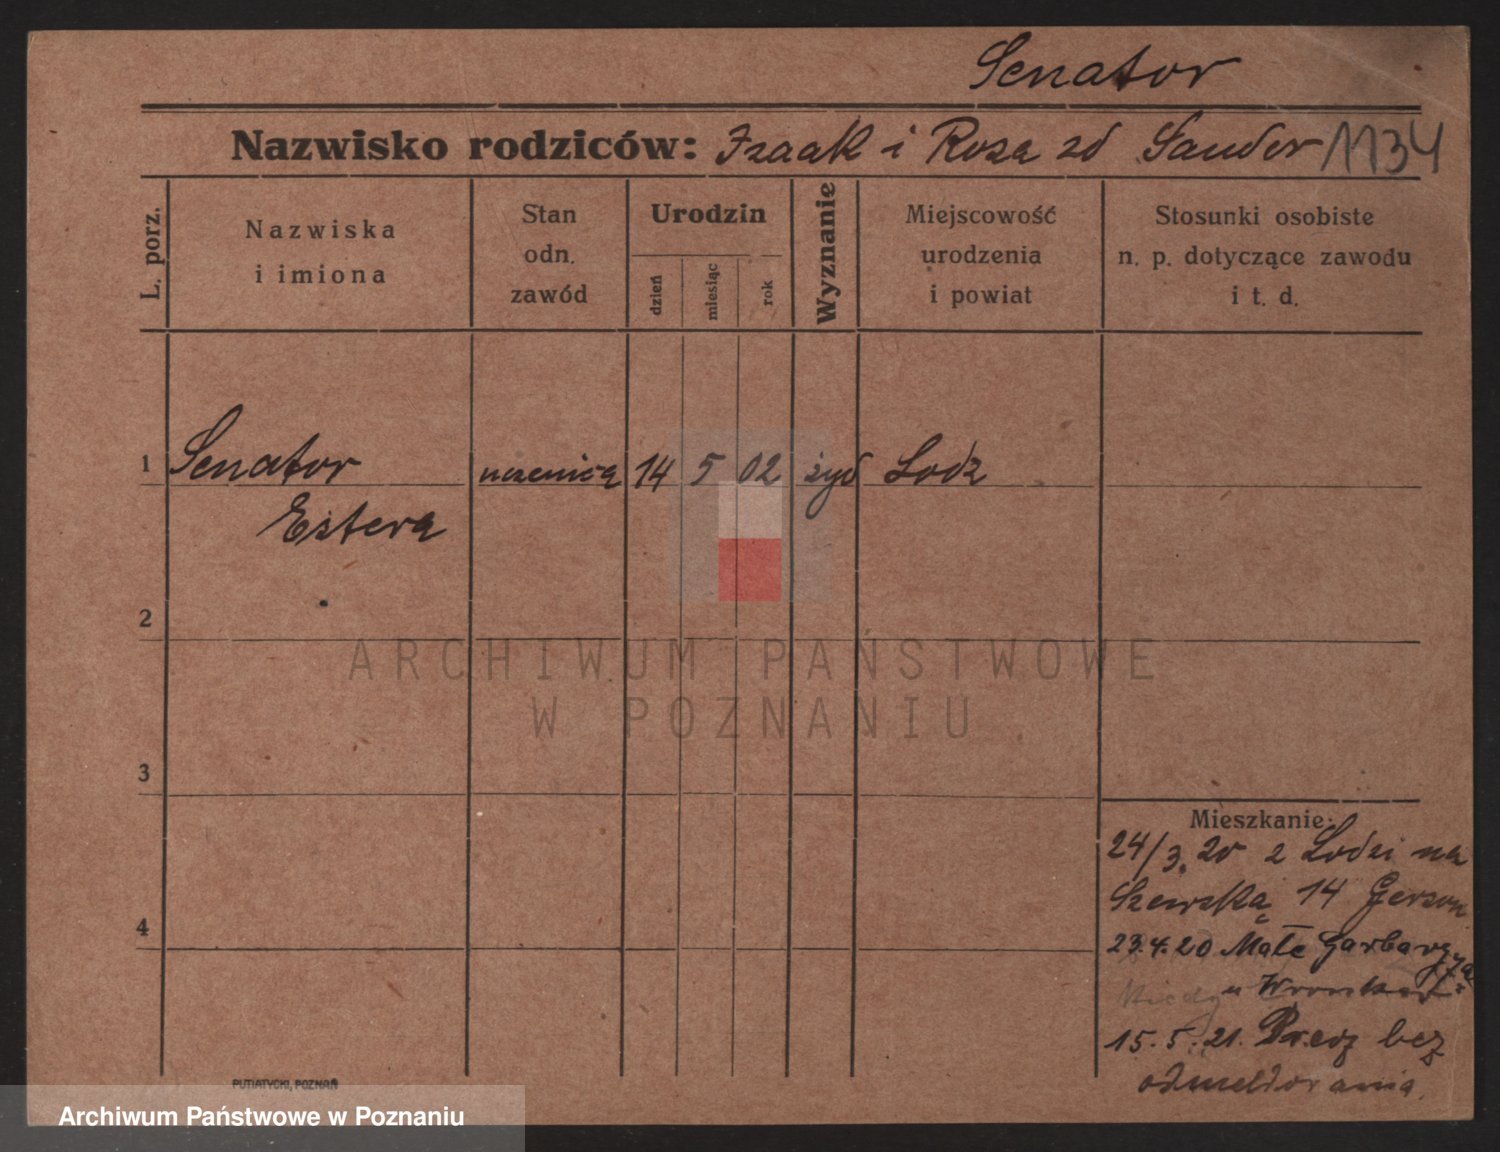 Senator
Nazwisko rodziców: Izaak i Roza zd Sander 1134
L. porz.
Nazwiska
i imiona
Stan
odn.
zawód
Urodzin
dzień
miesiąc
rok
Wyznanie
Miejscowość
urodzenia
i powiat
Stosunki osobiste
n. p. dotyczące zawodu
i t. d.
1 Senator uczenica 14 5 02 żyd Lodz
Estera
2
ARCHIWUM PAŃSTWOWE
W POZNANIU
3
Mieszkanie:
24/3. 20 z Lodzi na
Szewską 14 Gerson
4
23.4.20 Małe Garbary 7a
u
15.5.21. Precz bez
odmeldowania.
PUTIATYCKI, POZNAŃ
Archiwum Państwowe w Poznaniu